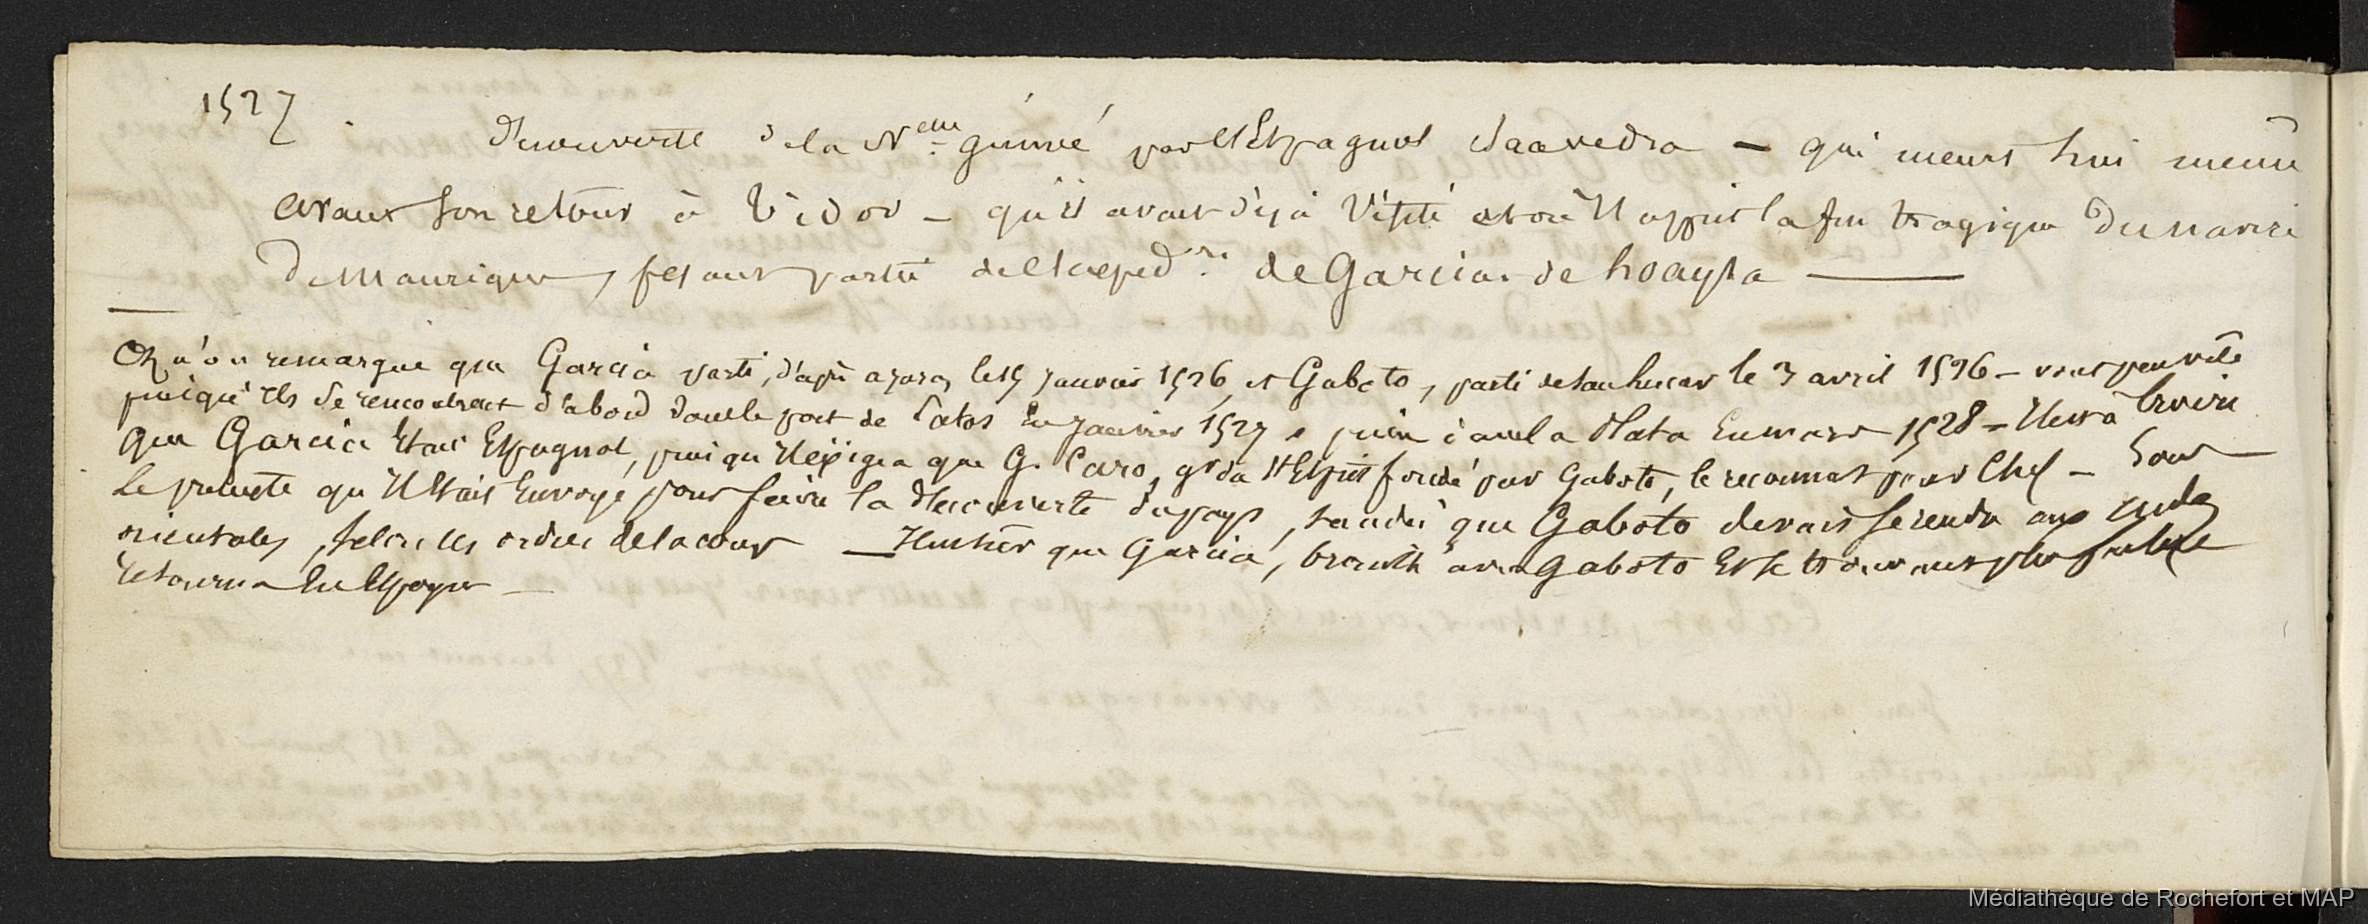 1527
Découverte de la N.elle guinée par l'Espagnol Saavedra — qui meurt lui meme
avant son retour à Tidor — qu'il avait déjà visité et où Il apprit la fin tragique du navire
de Manrique, fesant partie de l'exped.on de Garcias de Loaysa —
Qu'on remarque que Garcia parti, d'après azara, le 15 Janvier 1526, et Gaboto, parti de San lucar le 3 avril 1526 —
puisqu'Ils se rencontrent d'abord dans le port de Patos En Janvier 1527 & puis dans la Plata En mars 1528 — Il est à Croire
que Garcia Etait Espagnol, puisqu'Il éxigea que G. Caro, gr du St Esprit fondé par Gaboto, le reconnut pour Chef — Sous
le pretexte qu'Il Etait Envoyé pour faire la découverte du pays, tandis que Gaboto devait se rendre aux indes
orientales, selon les ordres de la cour — que Garcia, brouillé avec Gaboto Et se trouvant plus faible
retourna En Espagne —
Médiathèque de Rochefort et MAP